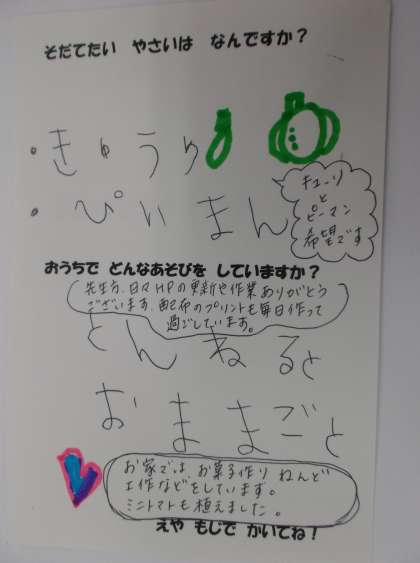 そだてたい やさいは なんですか？
・きゅうり
・ぴいまん
キューリ
と
ピーマン
希望です
おうちで どんなあそびを していますか？
先生方、日々HPの更新や作業ありがとう
ございます。配布のプリントも毎日作って
過ごしています。
とんねると
おままごと
お家では お菓子作り ねんど
工作などをしています。
ミニトマトも植えました。
えや もじで かいてね！